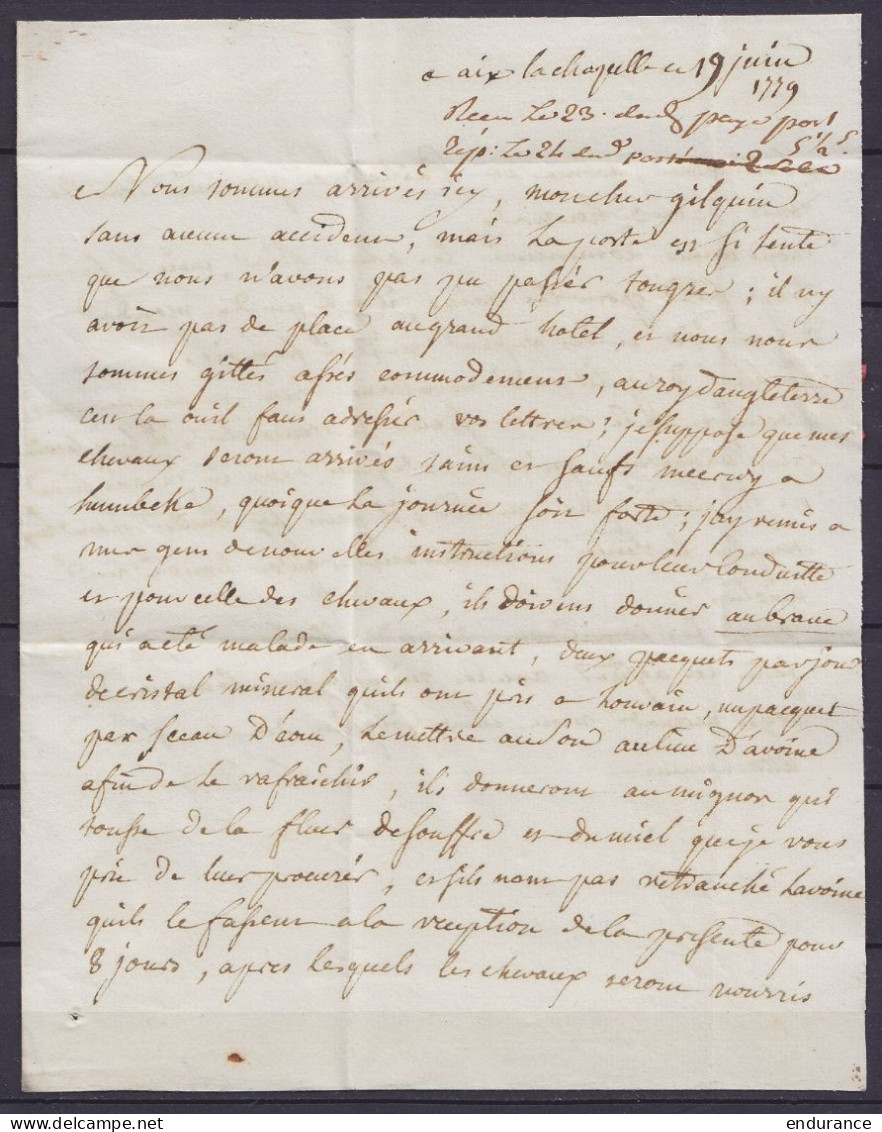 a aix la chapelle ce 19 juin
1779
Recu le 23. dud° payé port
5 1/2 s.
rép: le 24 dud°
Nous sommes arrivés icy, mon cher gilquin
sans aucun accident, mais la poste est si lente
que nous n'avons pas pu passer tongres; il ny
avoit pas de place au grand hotel, et nous nous
sommes gittés assés commodement, au roy d'angleterre
cest la ou il faut adresser vos lettres; je suppose que mes
chevaux seront arrivés sains et saufs mecredy a
humbeke, quoique la journée soit forte; jay remis a
mes gens de nouvelles instructions pour leur conduitte
et pour celle des chevaux, ils doivent donner au brave
qui a eté malade en arrivant, deux pacquets par jour
de cristal mineral quils ont pris a Louvain, un pacquet
par sceau D'eau, le mettre au son au lieu D'avoine
afin de le rafraichir, ils donneront au mignon qui
tousse de la fleur de souffre et du miel que je vous
prie de leur procurer, et sils nont pas retranché Lavoine
quils le fassent a la reception de la presente pour
8 jours, apres lesquels les chevaux seront nourris
endurance